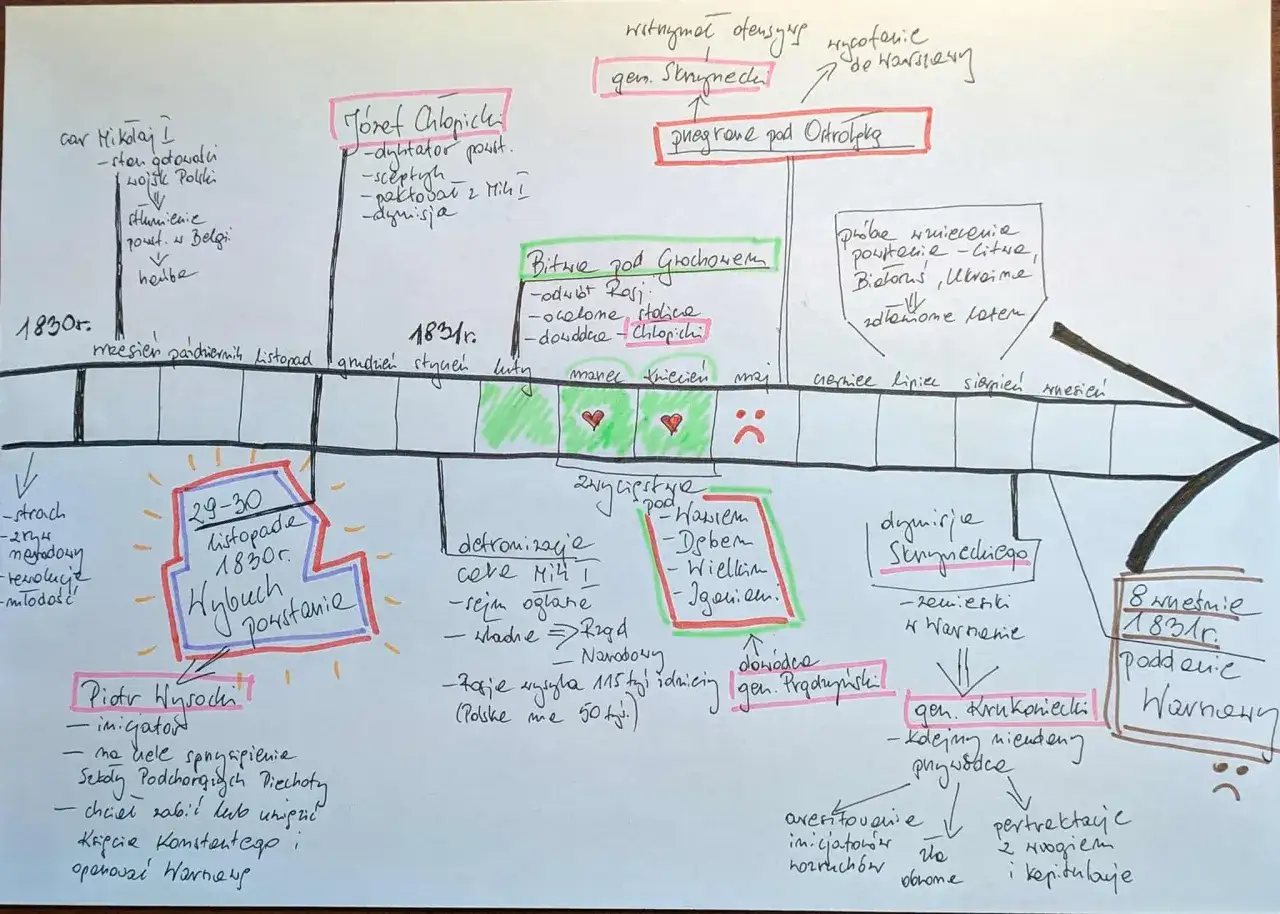 wstrzymał ofensywę
gen. Skrzynecki
wycofanie
do Warszawy
przegrana pod Ostrołęką
car Mikołaj I
- stan gotowości
wojsk Polski
stłumienie
powst. w Belgi.
hańba
Józef Chłopicki
- dyktator powst.
- sceptyk
- paktował z Mik I
- dymisja
Bitwa pod Grochowem
- odwrót Rosj.
- ocalona stolica
- dowódca - Chłopicki
próba wzniecenia
powstania - Litwa,
Białoruś, Ukraina
zdławione latem
1830r.
1831r.
wrzesień październik listopad grudzień styczeń luty marzec kwiecień maj czerwiec lipiec sierpień wrzesień
- strach
- zryw
narodowy
- rewolucja
- młodość
29-30
listopada
1830r.
Wybuch
powstania
Piotr Wysocki
- inicjator
- na czele sprzysiężenia
Szkoły Podchorążych Piechoty
- chciał zabić lub uwięzić
Księcia Konstantego i
opanować Warszawę
detronizacja
cara Mik I
- sejm ogłasza
- władza => Rząd
- Narodowy
- Rosja wysyła 115 tyś żołnierzy
(Polska ma 50 tyś.)
zwycięstwa
pod
- Wawrem
- Dębem
- Wielkim
- Iganiami
dowódca
gen. Prądzyński
dymisja
Skrzyneckiego
- zamieszki
w Warszawie
gen. Krukowiecki
- kolejny nieudany
przywódca
aresztowanie
inicjatorów
rozruchów
zła
obrona
pertraktacje
z wrogiem
i kapitulacja
8 września
1831r.
poddanie
Warszawy